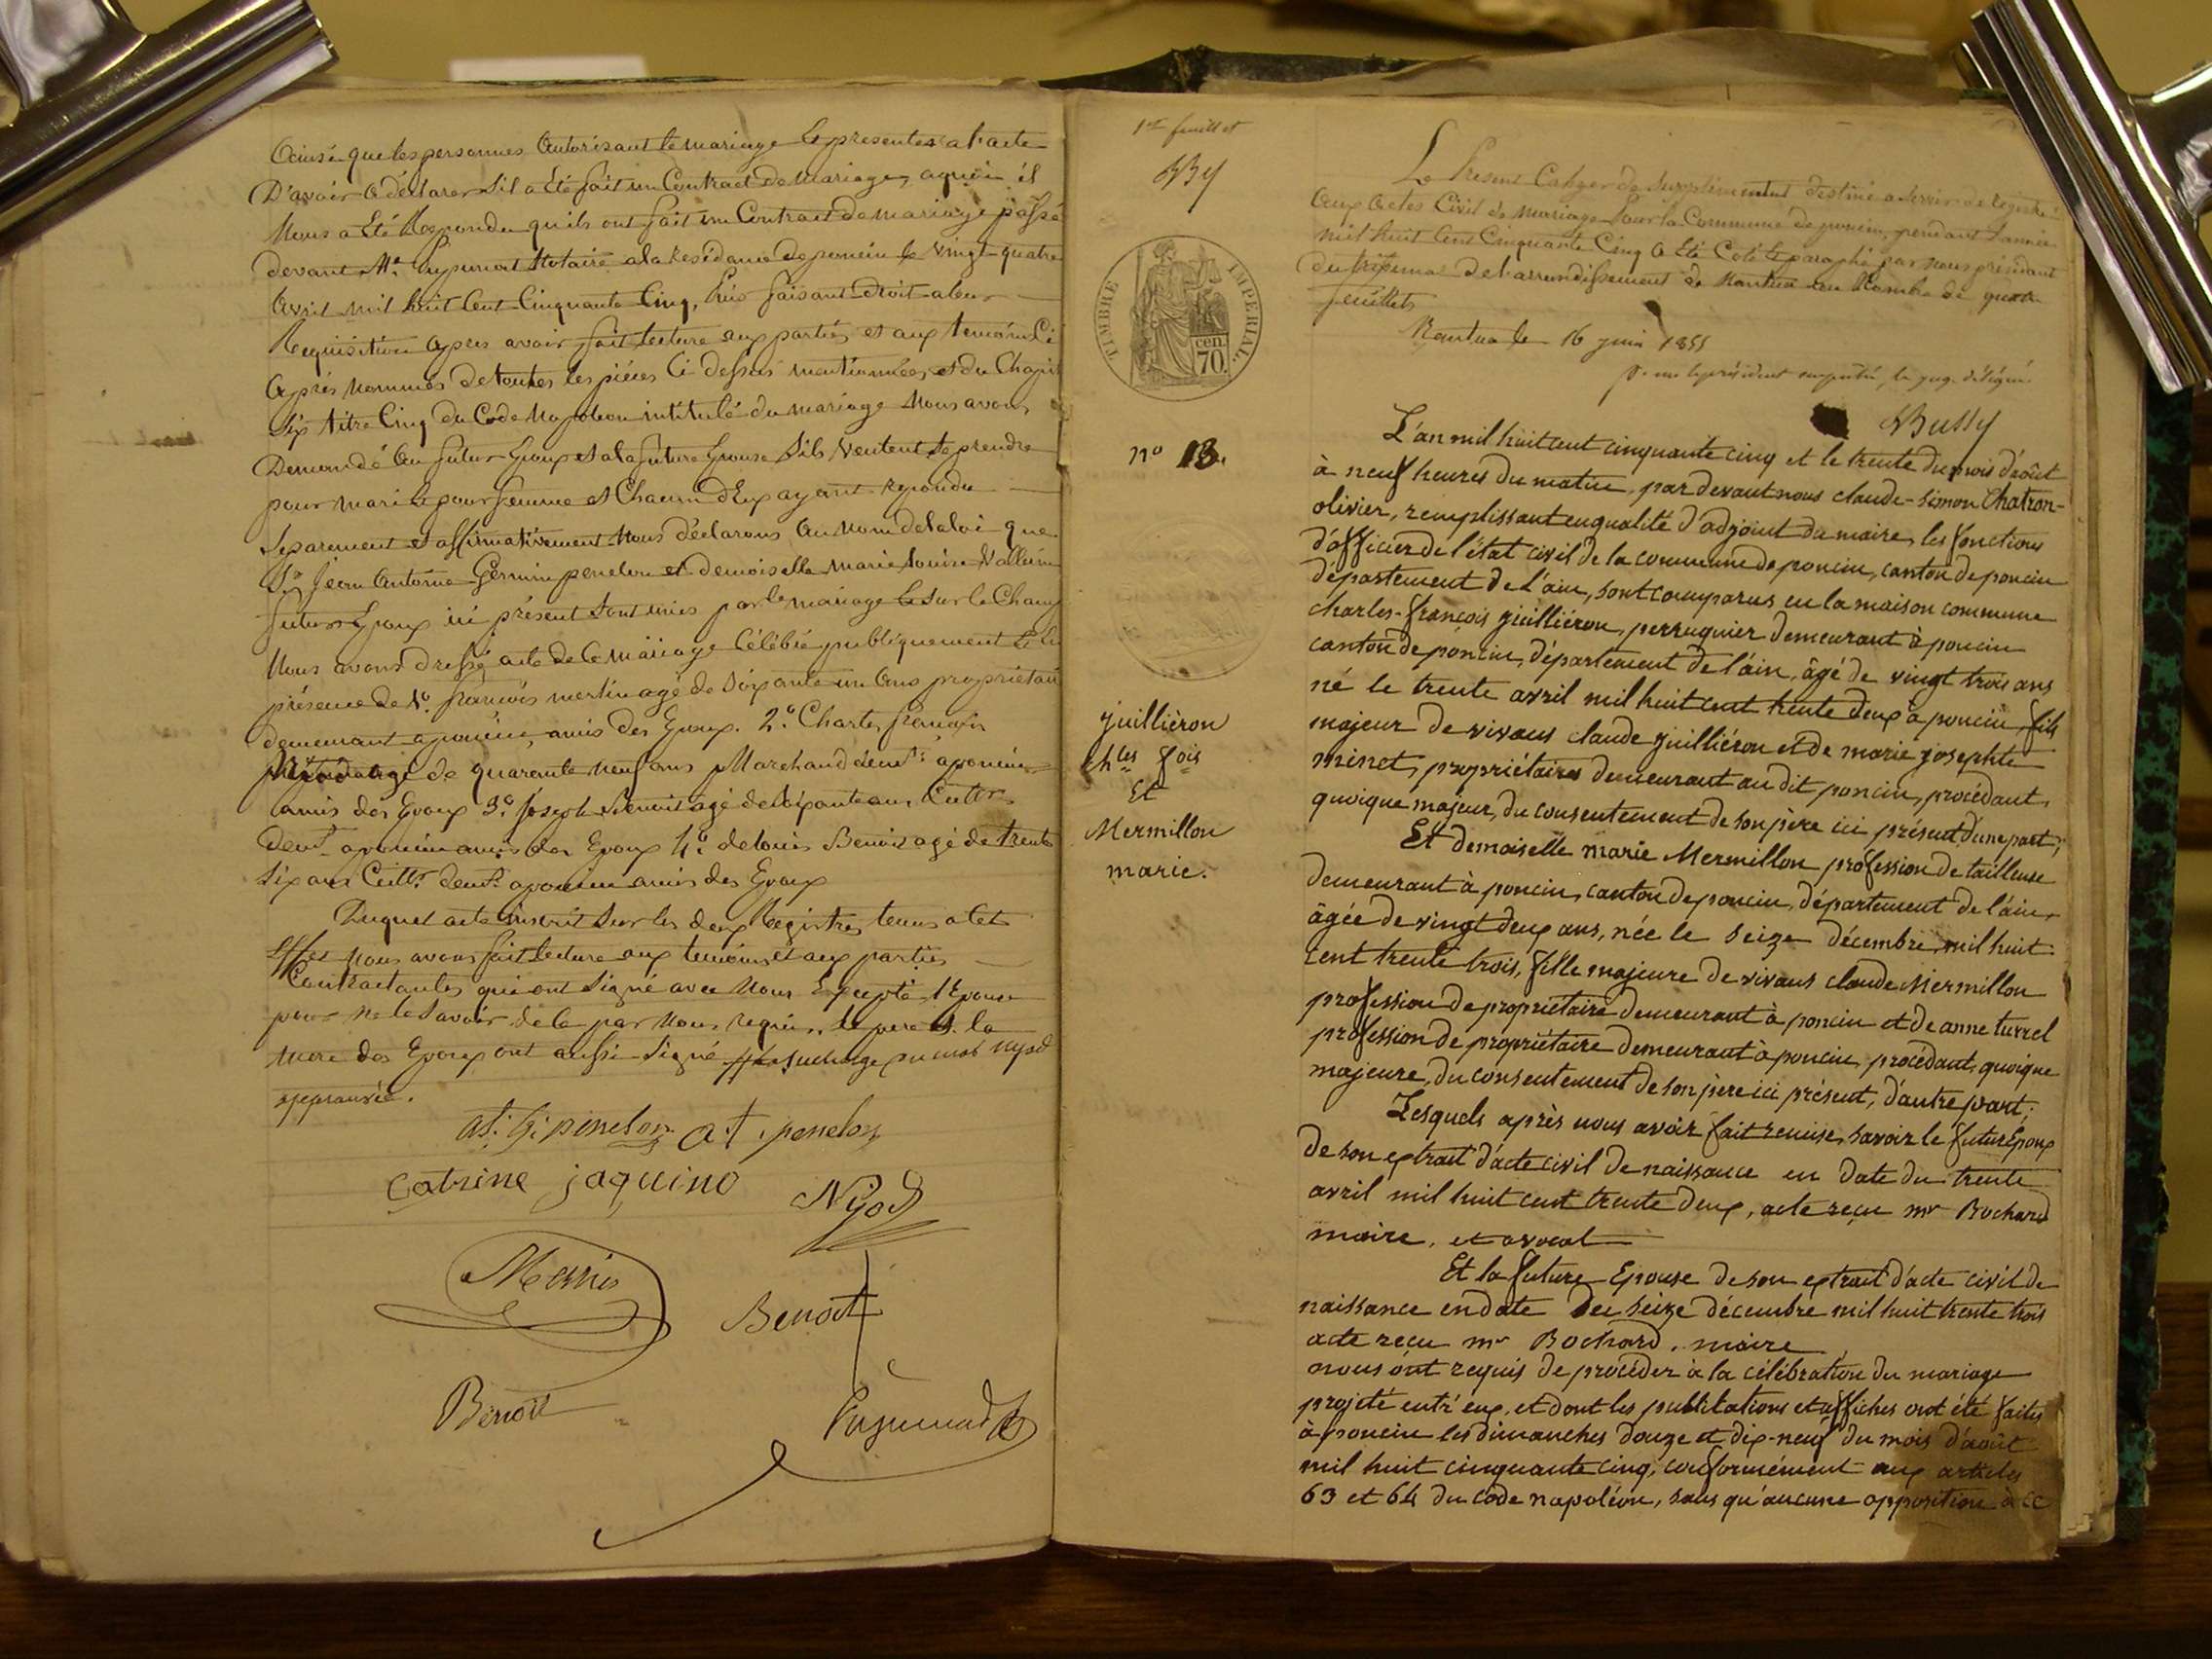 que les personnes autorisant le mariage presentes a l'acte
D'avoir a déclarer s'il a Eté fait un Contract de Mariage, a quoi il
Nous a Eté Repondu qu'ils ont fait un Contract de mariage passé
devant Me Notaire a la Residance de poncin le vingt quatre
avril mil huit Cent Cinquante Cinq, faisant droit a leur
Requisition apres avoir fait lecture aux parties et aux temoins Ci
après nommés de toutes les pièces Ci dessus mentionnées, et du Chapit
Six titre Cinq du Code Napoleon intitulé du mariage Nous avons
Demandé au futur Epoux et a la future Epouse s'ils veulent se prendre
pour mari et pour femme et Chacun d'Eux ayant repondu
Separement et affirmativement Nous déclarons au nom de la loi que
Sr Jean Antoine Germin penelon et demoiselle Marie Louise
futurs Epoux ici présent sont unis par le mariage et sur le Champ
Nous avons dressé acte de Ce mariage Célébré publiquement
présence de 1o. françois merlin agé de soixante un ans propriétair
demeurant a poncin, amis des Epoux. 2o. Charles françois
agé de quarante neuf ans Marchand demt. a poncin
amis des Epoux 3o. Joseph Benoit agé de soixante ans Cultr.
demt. a poncin amis des Epoux 4o. de louis Benoit agé de trente
six ans Cultr. demt. a poncin amis des Epoux
Duquel acte inscrit sur les deux Registres tenus a Cet
Effet nous avons fait lecture aux temoins et aux parties
Contractantes qui ont signé avec Nous Excepté l'Epouse
pour ne le savoir de ce par Nous requis, le pere et la
mere des Epoux ont aussi signé surcharge du mot nyod
approuvée.
at. G. penelon at. penelon
catrine jaquino Nyod
Benoit
Benoit
1er feuillet
TIMBRE IMPERIAL
cen.
70.
Le Present Cahyer de Supplementent destiné a servir de registre
aux actes Civil de mariage pour la Commune de poncin, pendant l'année
mil huit Cent Cinquante Cinq a Eté Coté et paraphé par nous président
du tribunal de l'arrondissement de Nantua au Nombre de
feuillets
Nantua le 16 juin 1855
p. mr le président empêché, le juge délégué
Bussy
no 13.
juilliéron
chles fois
Et
Mermillon
marie.
L'an mil huit cent cinquante cinq et le trente du mois d'août
à neuf heures du matin, par devant nous claude-simon Chatron-
olivier, remplissant en qualité d'adjoint du maire, les fonctions
d'officier de l'état civil de la commune de poncin, canton de poncin
département de l'ain, sont comparus en la maison commune
charles-françois juilliéron, perruquier demeurant à poncin
canton de poncin, département de l'ain, âgé de vingt trois ans
né le trente avril mil huit cent trente deux à poncin, fils
majeur de vivans claude juilliéron et de marie josephte
minet, propriétaires demeurant au dit poncin, procédant,
quoique majeur, du consentement de son père ici présent, d'une part;
Et demoiselle marie Mermillon profession de tailleuse
demeurant à poncin, canton de poncin, département de l'ain,
âgée de vingt deux ans, née le seize décembre mil huit
cent trente trois, fille majeure de vivans claude Mermillon
profession de propriétaire demeurant à poncin et de anne turrel
profession de propriétaire demeurant à poncin, procédant, quoique
majeure, du consentement de son père ici présent, d'autre part;
Lesquels après nous avoir fait remise, savoir le futur Epoux
de son extrait d'acte civil de naissance en date du trente
avril mil huit cent trente deux, acte reçu mr Bochard
maire, et avocat
Et la future Epouse de son extrait d'acte civil de
naissance en date du seize décembre mil huit trente trois
acte reçu mr Bochard, maire
nous ont requis de procéder à la célébration du mariage
projeté entr'eux, et dont les publications et affiches ont été faites
à poncin les dimanches douze et dix-neuf du mois d'août
mil huit cinquante cinq, conformément aux articles
63 et 64 du code napoléon, sans qu'aucune opposition à ce